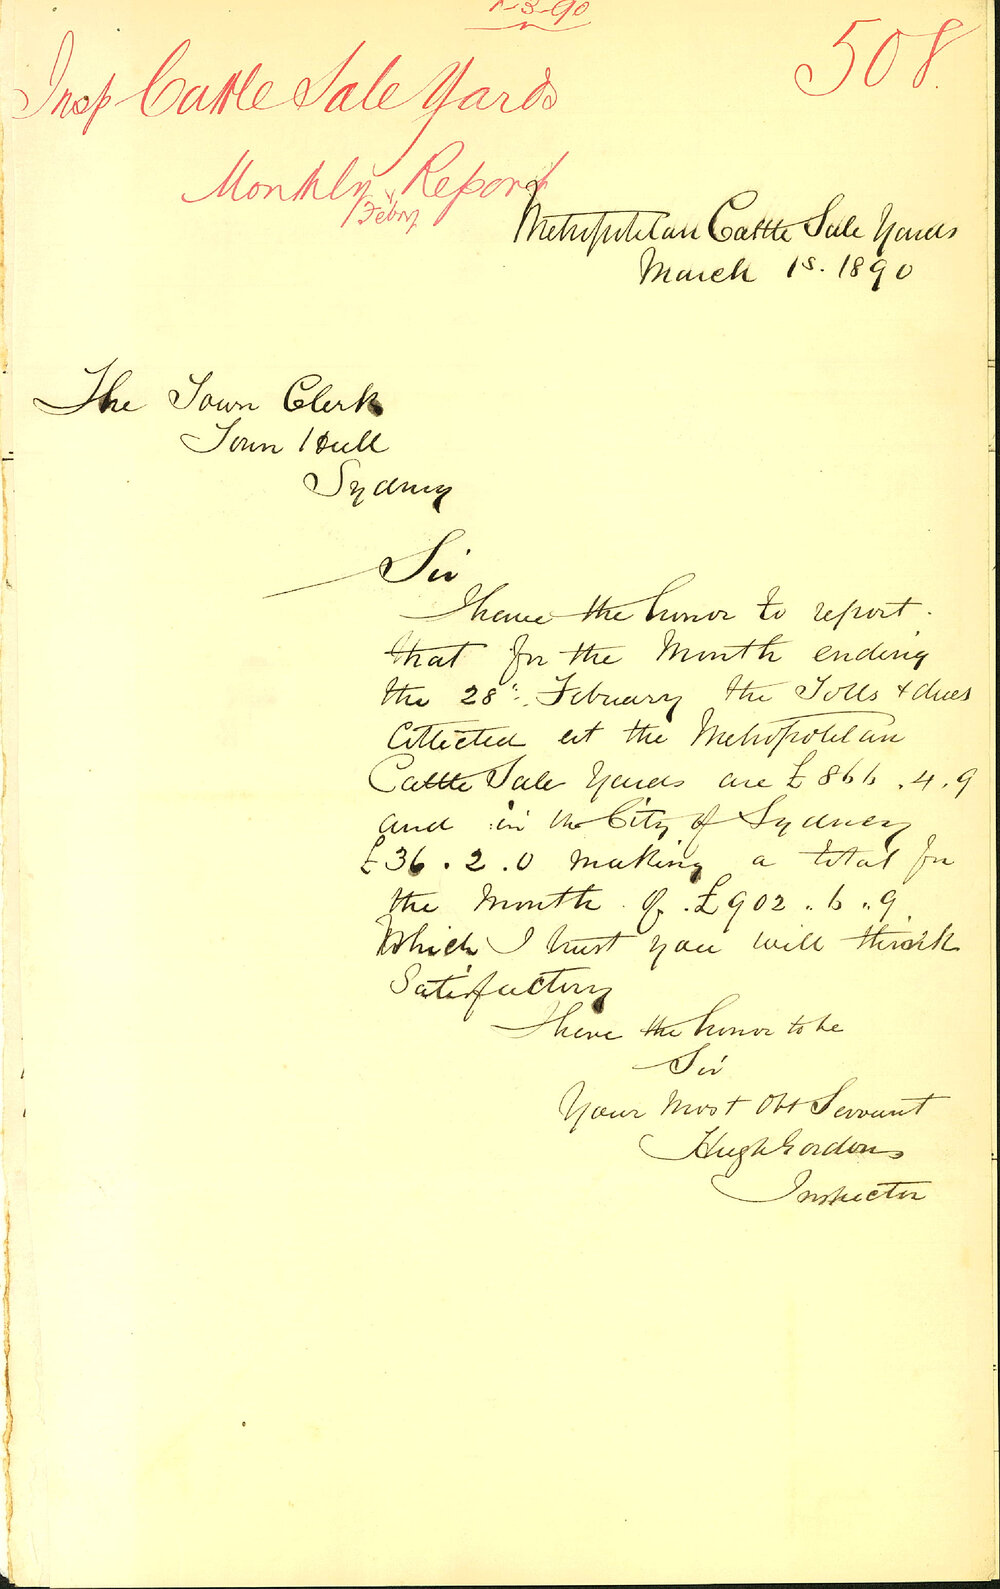 1-3-90
508
Insp Cattle Sale Yards
Monthly Report
Febry
Metropolitan Cattle Sale Yards
March 1s. 1890
The Town Clerk
Town Hall
Sydney
Sir
I have the honor to report
that for the Month ending
the 28th February the Tolls & dues
Collected at the Metropolitan
Cattle Sale Yards are £866.4.9
and in the City of Sydney
£36.2.0 making a total for
the Month of £902..6..9
Which I trust you will think
Satisfactory
I have the honor to be
Sir
Your Most Obt Servant
Hugh Gordon
Inspector